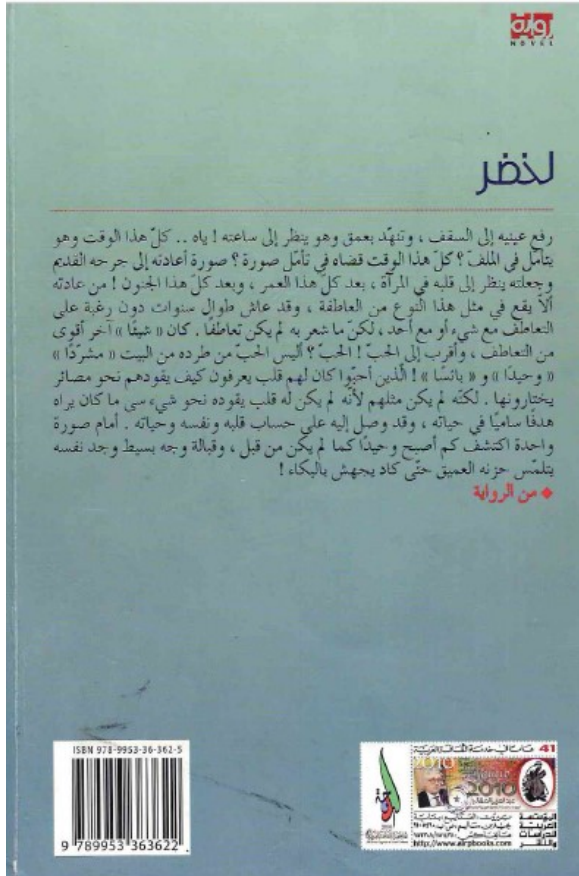 رواية
NOVEL
لخضر
رفع عينيه إلى السقف ، وتنهّد بعمق وهو ينظر إلى ساعته ! ياه .. كلّ هذا الوقت وهو
يتأمّل في الملفّ ؟ كلّ هذا الوقت قضاه في تأمّل صورة ؟ صورة أعادته إلى جرحه القديم
وجعلته ينظر إلى قلبه في المرآة ، بعد كلّ هذا العمر ، وبعد كلّ هذا الجنون ! من عادته
ألاّ يقع في مثل هذا النوع من العاطفة ، وقد عاش طوال سنوات دون رغبة على
التعاطف مع شيء أو مع أحد ، لكنّ ما شعر به لم يكن تعاطفًا . كان « شيئًا » آخر أقوى
من التعاطف ، وأقرب إلى الحبّ ! الحبّ ؟ أليس الحبّ من طرده من البيت « مشرّدًا »
« وحيدًا » و « بائسًا » ! الّذين أحبّوا كان لهم قلب يعرفون كيف يقودهم نحو مصائر
يختارونها . لكنّه لم يكن مثلهم لأنّه لم يكن له قلب يقوده نحو شيء سى ما كان يراه
هدفًا ساميًا في حياته ، وقد وصل إليه على حساب قلبه ونفسه وحياته . أمام صورة
واحدة اكتشف كم أصبح وحيدًا كما لم يكن من قبل ، وقبالة وجه بسيط وجد نفسه
يتلمّس حزنه العميق حتّى كاد يجهش بالبكاء !
◆ من الرواية
ISBN 978-9953-36-362-5
9 789953 363622
41
2010
2010
المؤسسة
العربية
للدراسات
والنشر
http://www.airpbooks.com